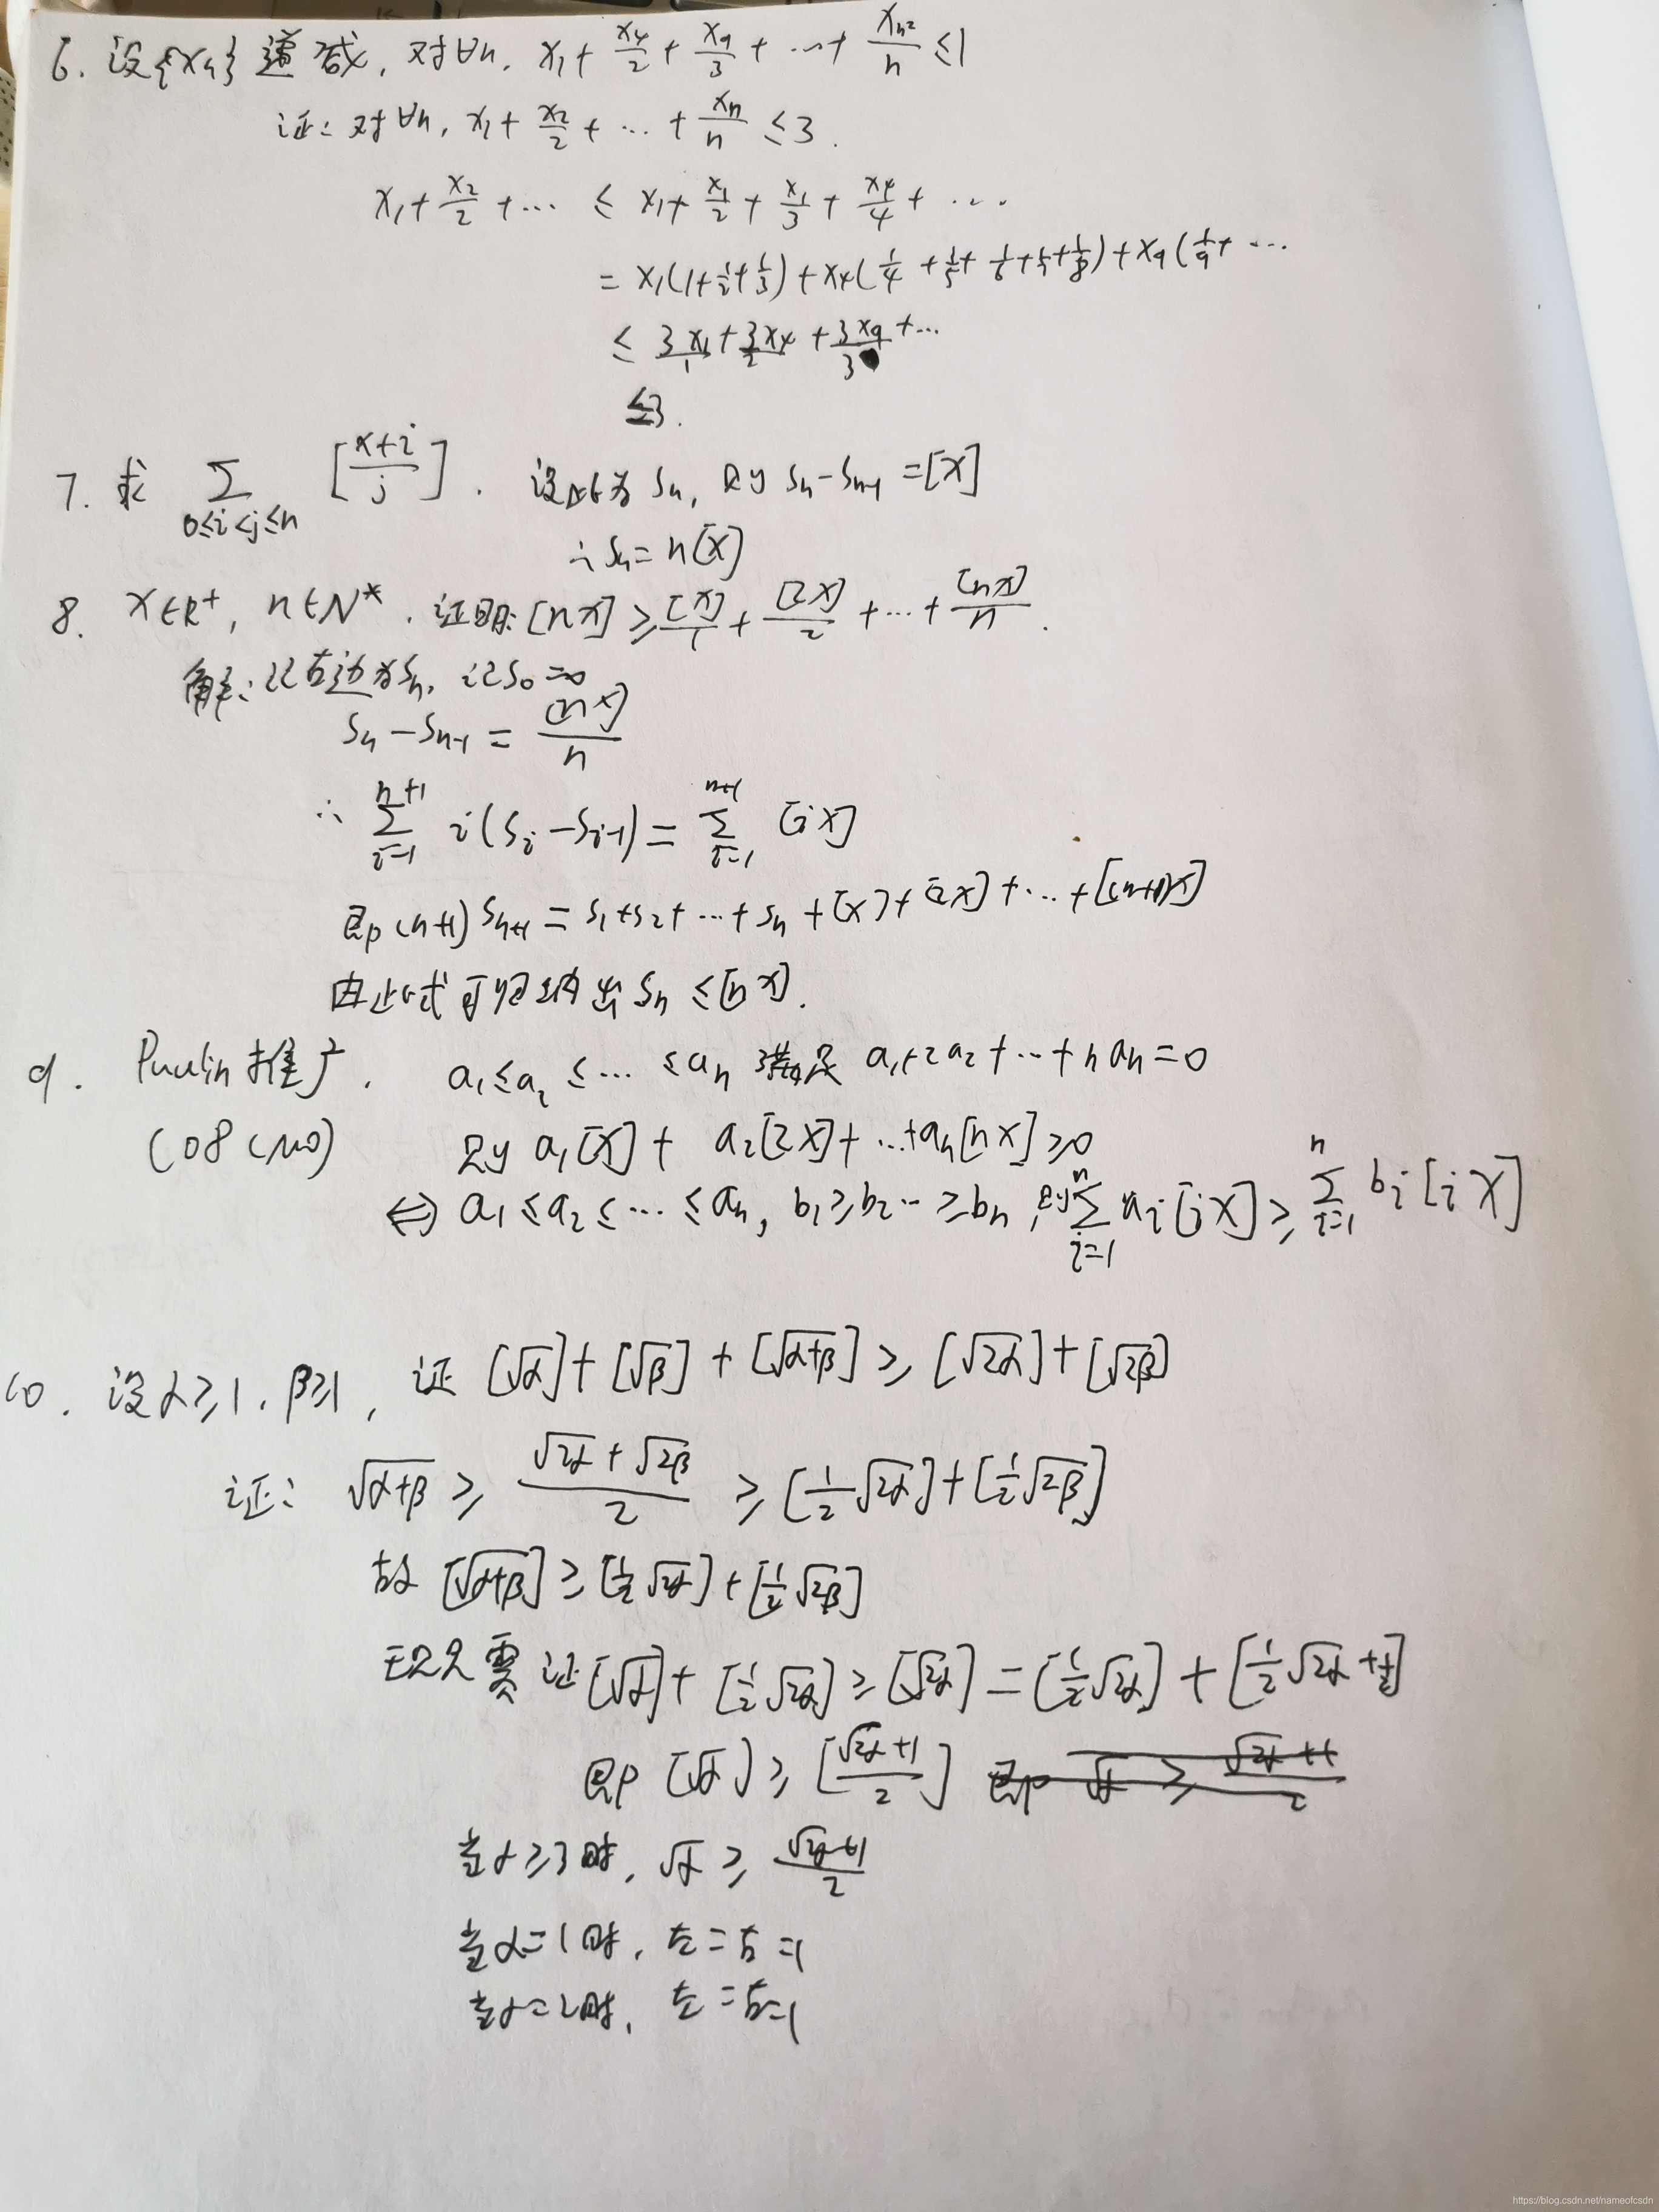 6. 设{xₙ}递减, 对∀n, x₁ + x₄/2 + x₉/3 + … + x_{n²}/n ≤ 1
证: 对∀n, x₁ + x₂/2 + … + xₙ/n ≤ 3.
x₁ + x₂/2 + … ≤ x₁ + x₁/2 + x₁/3 + x₄/4 + …
= x₁(1+1/2+1/3) + x₄(1/4+1/5+1/6+1/7+1/8) + x₉(1/9+…
≤ 3x₁/1 + 3x₄/2 + 3x₉/3 + …
≤3.
7. 求 Σ_{0≤i<j≤n} [(x+i)/j]. 设此为 Sₙ, 则 Sₙ-Sₙ₋₁ = [x]
∴ Sₙ = n[x]
8. x∈R⁺, n∈N*. 证明: [nx] ≥ [x]/1 + [2x]/2 + … + [nx]/n.
解: 记右边为Sₙ, 记S₀=0
Sₙ - Sₙ₋₁ = [nx]/n
∴ Σ_{i=1}^{n+1} i(Sᵢ - Sᵢ₋₁) = Σ_{i=1}^{n+1} [ix]
即 (n+1)Sₙ₊₁ = S₁+S₂+…+Sₙ+[x]+[2x]+…+[(n+1)x]
由此式可归纳出 Sₙ ≤ [nx].
9. 推广. a₁≤a₂≤…≤aₙ 满足 a₁+2a₂+…+naₙ=0
(08 CMO) 则 a₁[x] + a₂[2x] + …+aₙ[nx] ≥0
⇔ a₁≤a₂≤…≤aₙ, b₁≥b₂…≥bₙ, 则 Σ_{i=1}^{n} aᵢ[ix] ≥ Σ_{i=1}^{n} bᵢ[ix]
10. 设α≥1, β≥1, 证 [√α]+[√β]+[√(α+β)] ≥ [√(2α)]+[√(2β)]
证: √(α+β) ≥ (√(2α)+√(2β))/2 ≥ [1/2 √(2α)]+[1/2 √(2β)]
故 [√(α+β)] ≥ [1/2 √(2α)]+[1/2 √(2β)]
现只需证 [√α]+[1/2 √(2α)] ≥ [√(2α)] = [1/2 √(2α)] + [1/2 √(2α) + 1/2]
即 [√α] ≥ [(√(2α)+1)/2] 即 √α ≥ (√(2α)+1)/2
当α≥3时, √α ≥ (√(2α)+1)/2
当α=1时, 左=右=1
当α=2时, 左=右=1
https://blog.csdn.net/nameofcsdn